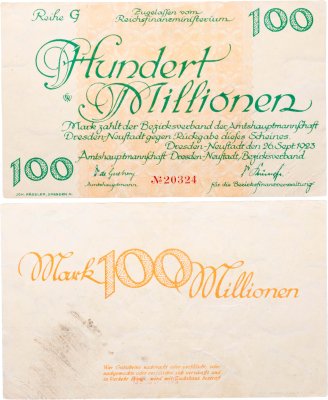 Reihe G
Zugelassen vom
Reichsfinanzministerium
100
Hundert
Millionen
Mark zahlt der Bezirksverband der Amtshauptmannschaft
Dresden-Neustadt gegen Rückgabe dieses Scheines.
Dresden-Neustadt den 26. Sept. 1923
100
Amtshauptmannschaft Dresden-Neustadt, Bezirksverband
Amtshauptmann
№20324
für die Bezirksfinanzverwaltung
JOH. PÄSSLER, DRESDEN-N.
Mark 100 Millionen
Wer Gutscheine nachmacht oder verfälscht, oder
nachgemachte oder verfälschte sich verschafft und
in Verkehr bringt, wird mit Zuchthaus bestraft